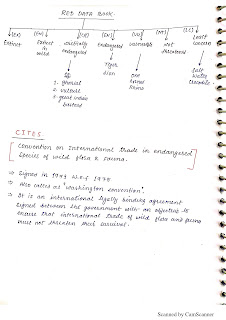 RED DATA BOOK
(EX) (EW) (CR) (EN) (VU) (NT) (LC)
Extinct Extinct in wild critically endangered Endangered vulnerable not threatened Least concern
eg Tiger one horned Rhino salt water crocodile
1. gharial lion
2. vulture
3. great indian bustard
CITES :
Convention on International trade in endangered
species of wild flora & fauna.
⇒ Signed in 1973 w.e.f 1975
⇒ Also called as "Washington convention".
⇒ It is an international legally binding agreement
signed between the government with an objective to
ensure that international trade of wild flora and fauna
must not threaten their survival.
Scanned by CamScanner